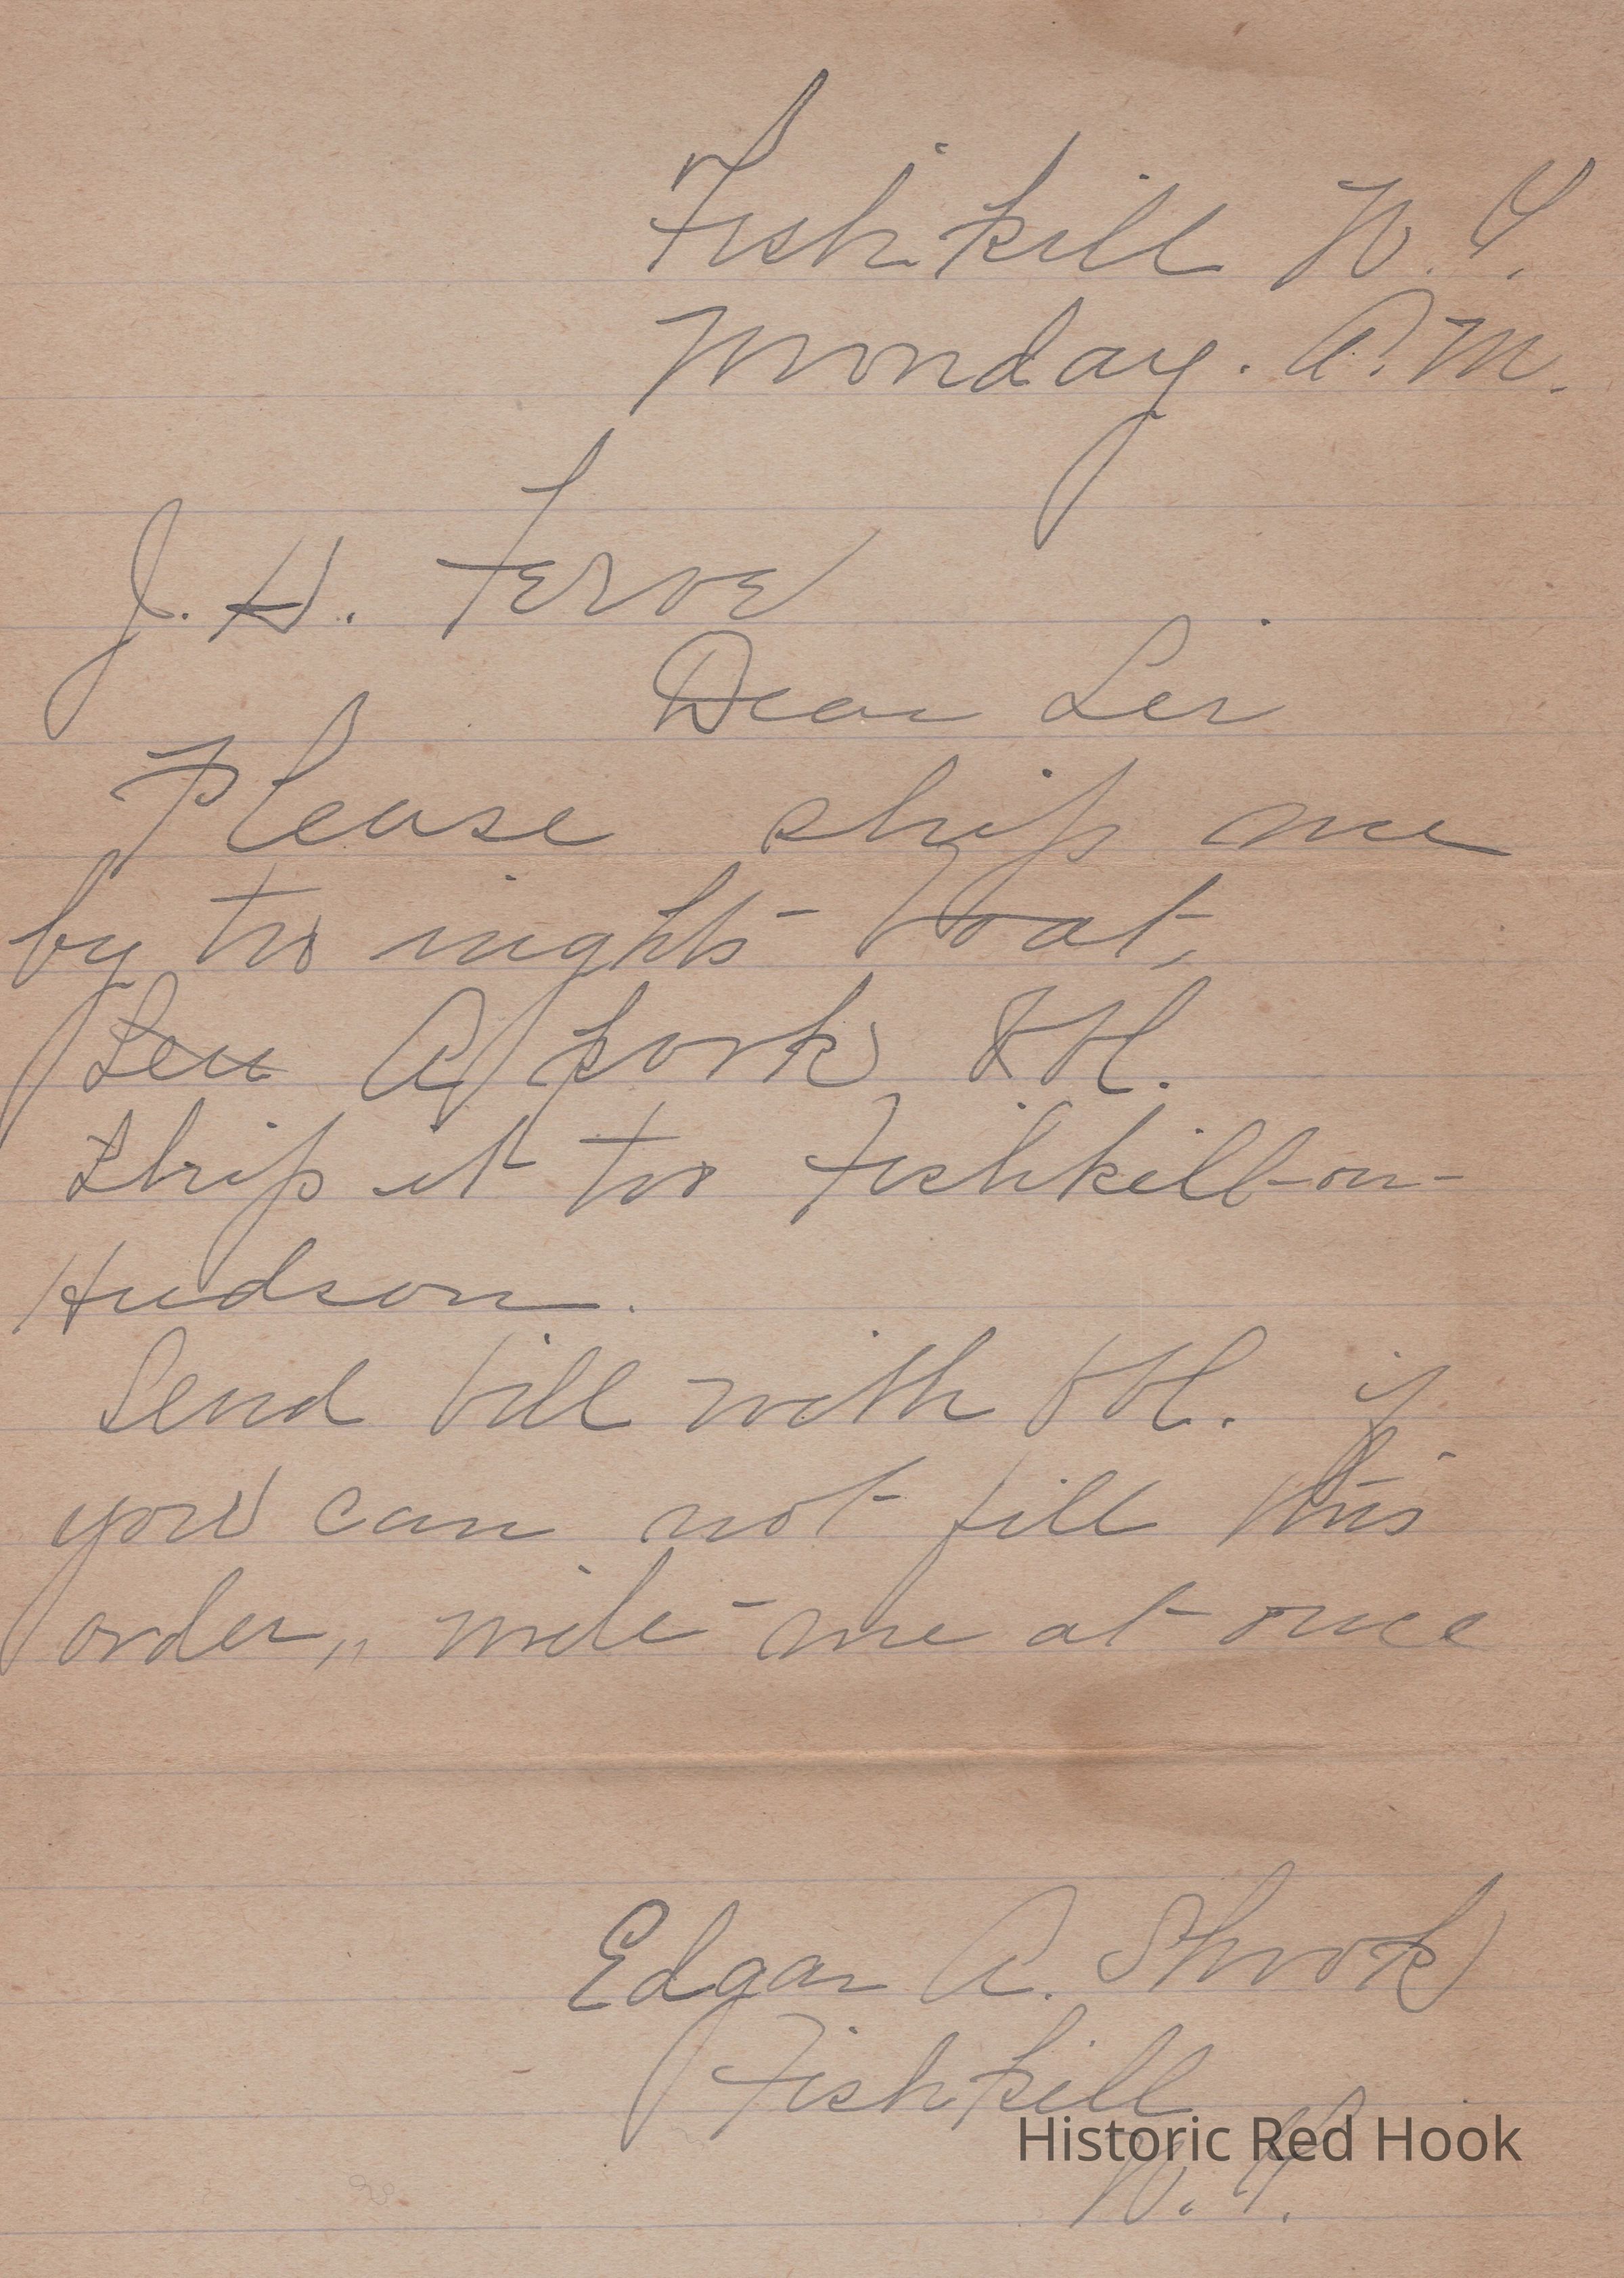 Fishkill N.Y.
Monday. A.M.
J. H. Ferov
Dear Sir
Please ship me
by to nights boat,
Ten A pork Bbl.
Ship it to Fishkill-on-
Hudson.
Send bill with Bbl. if
you can not fill this
order,, write me at once
Edgar A. Shook
Fishkill
N. Y.
Historic Red Hook